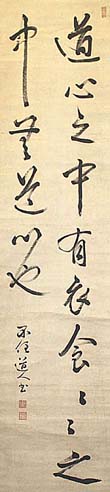 道心之中有衣食々々之
中無道心也
道人書